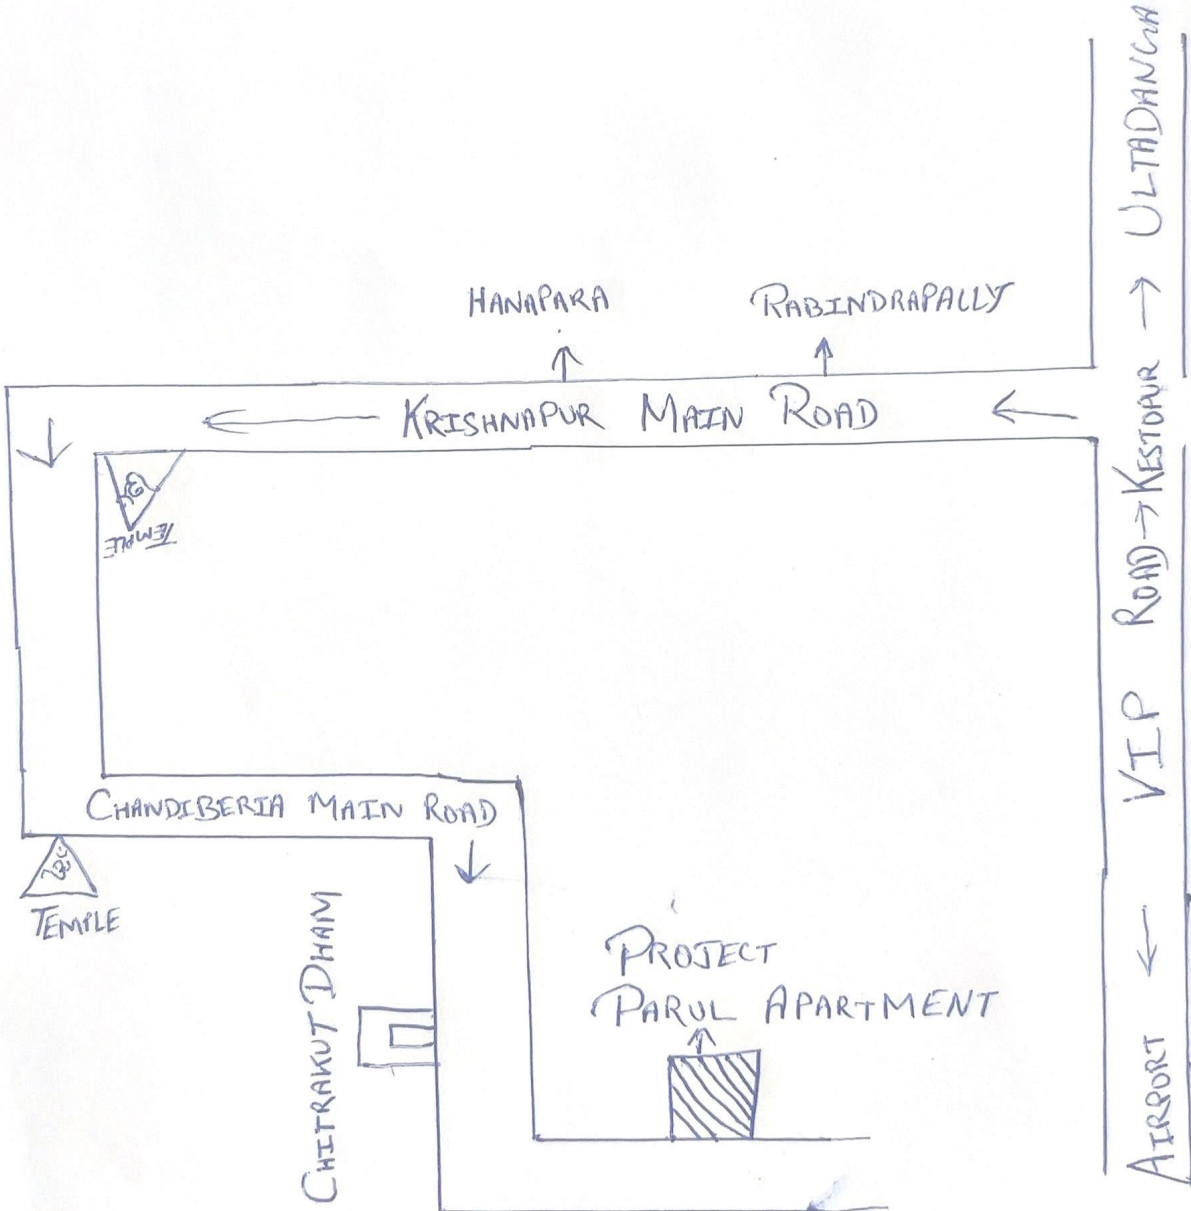 HANAPARA
RABINDRAPALLY
KRISHNAPUR MAIN ROAD
TEMPLE
CHANDIBERIA MAIN ROAD
TEMPLE
CHITRAKUT DHAM
PROJECT
PARUL APARTMENT
AIRPORT ← VIP ROAD → KESTOPUR → ULTADANGA